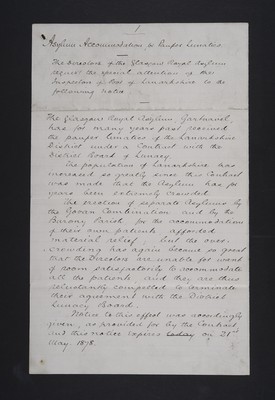 1
Asylum Accommodation to Pauper Lunatics.
The Directors of the Glasgow Royal Asylum
request the special attention of the
Inspectors of Poor of Lanarkshire to the
following notice.
The Glasgow Royal Asylum, Gartnavel,
has for many years past received
the pauper lunatics of the Lanarkshire
District under a Contract with the
District Board of Lunacy.
The population of Lanarkshire has
increased so greatly since this Contract
was made that the Asylum has for
years been extremely crowded.
The erection of separate Asylums by
the Govan Combination and by the
Barony Parish for the accommodation
of their own patients afforded
material relief, but the over-
crowding has again become so great
that the Directors are unable for want
of room satisfactorily to accommodate
all the patients, and they are thus
reluctantly compelled to terminate
their agreement with the District
Lunacy Board.
Notice to this effect was accordingly
given, as provided for by the Contract
and this notice expires on 31st
May 1878.